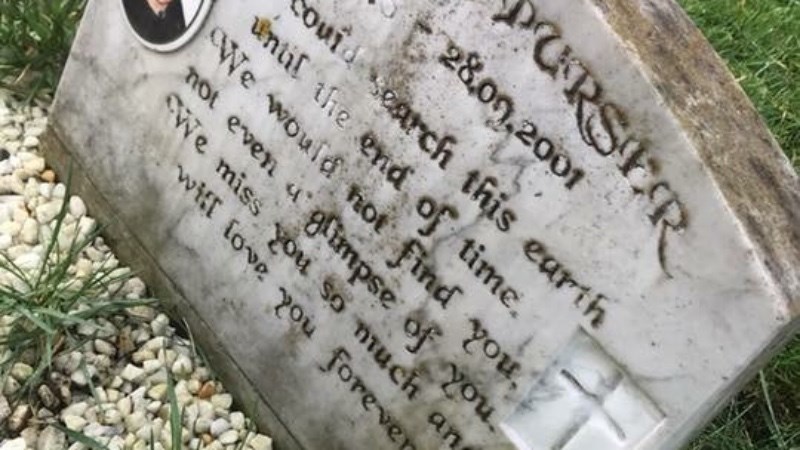 PURSER
28.09.2001
could search this earth
until the end of time.
We would not find you,
not even a glimpse of you.
We miss you so much and
will love you forever